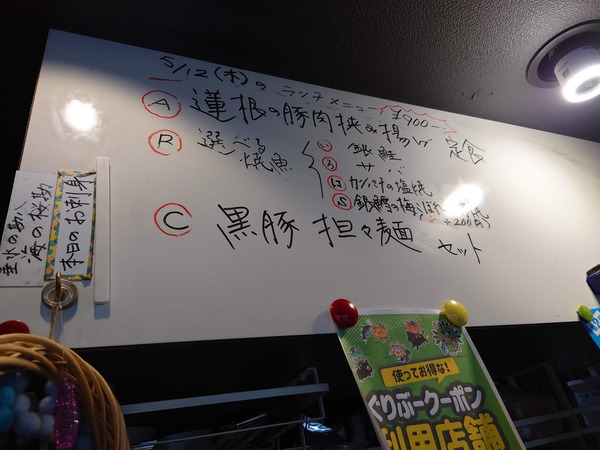 5/12(木)のランチメニュー ¥900-
A 蓮根の豚肉挟み揚げ 定食
B 選べる焼魚
い 銀鮭
ろ サバ
は カンパチの塩焼
銀鱈の梅
+200円
C 黒豚 担々麺 セット
本日のお刺身
海の桜勘
垂水の勘八
使ってお得な!
ぐりぶークーポン
利用店舗